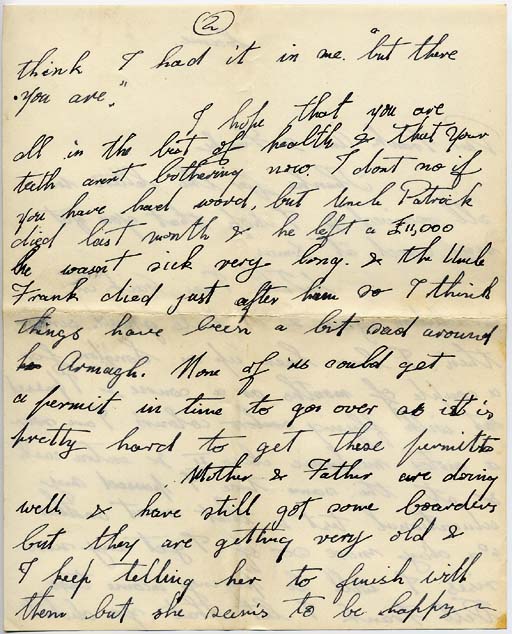 (2)
think I had it in me. "but there
you are."
I hope that you are
all in the best of health & that your
teeth arent bothering now. I dont no if
you have had word, but Uncle Patrick
died last month & he left a £11,000
he wasnt sick very long. & the Uncle
Frank died just after him so I think
things have been a bit sad around
Armagh. None of us could get
a permit in time to go over as it is
pretty hard to get these permits
. Mother & Father are doing
well & have still got some boarders
but they are getting very old &
I keep telling her to finish with
them but she seems to be happy